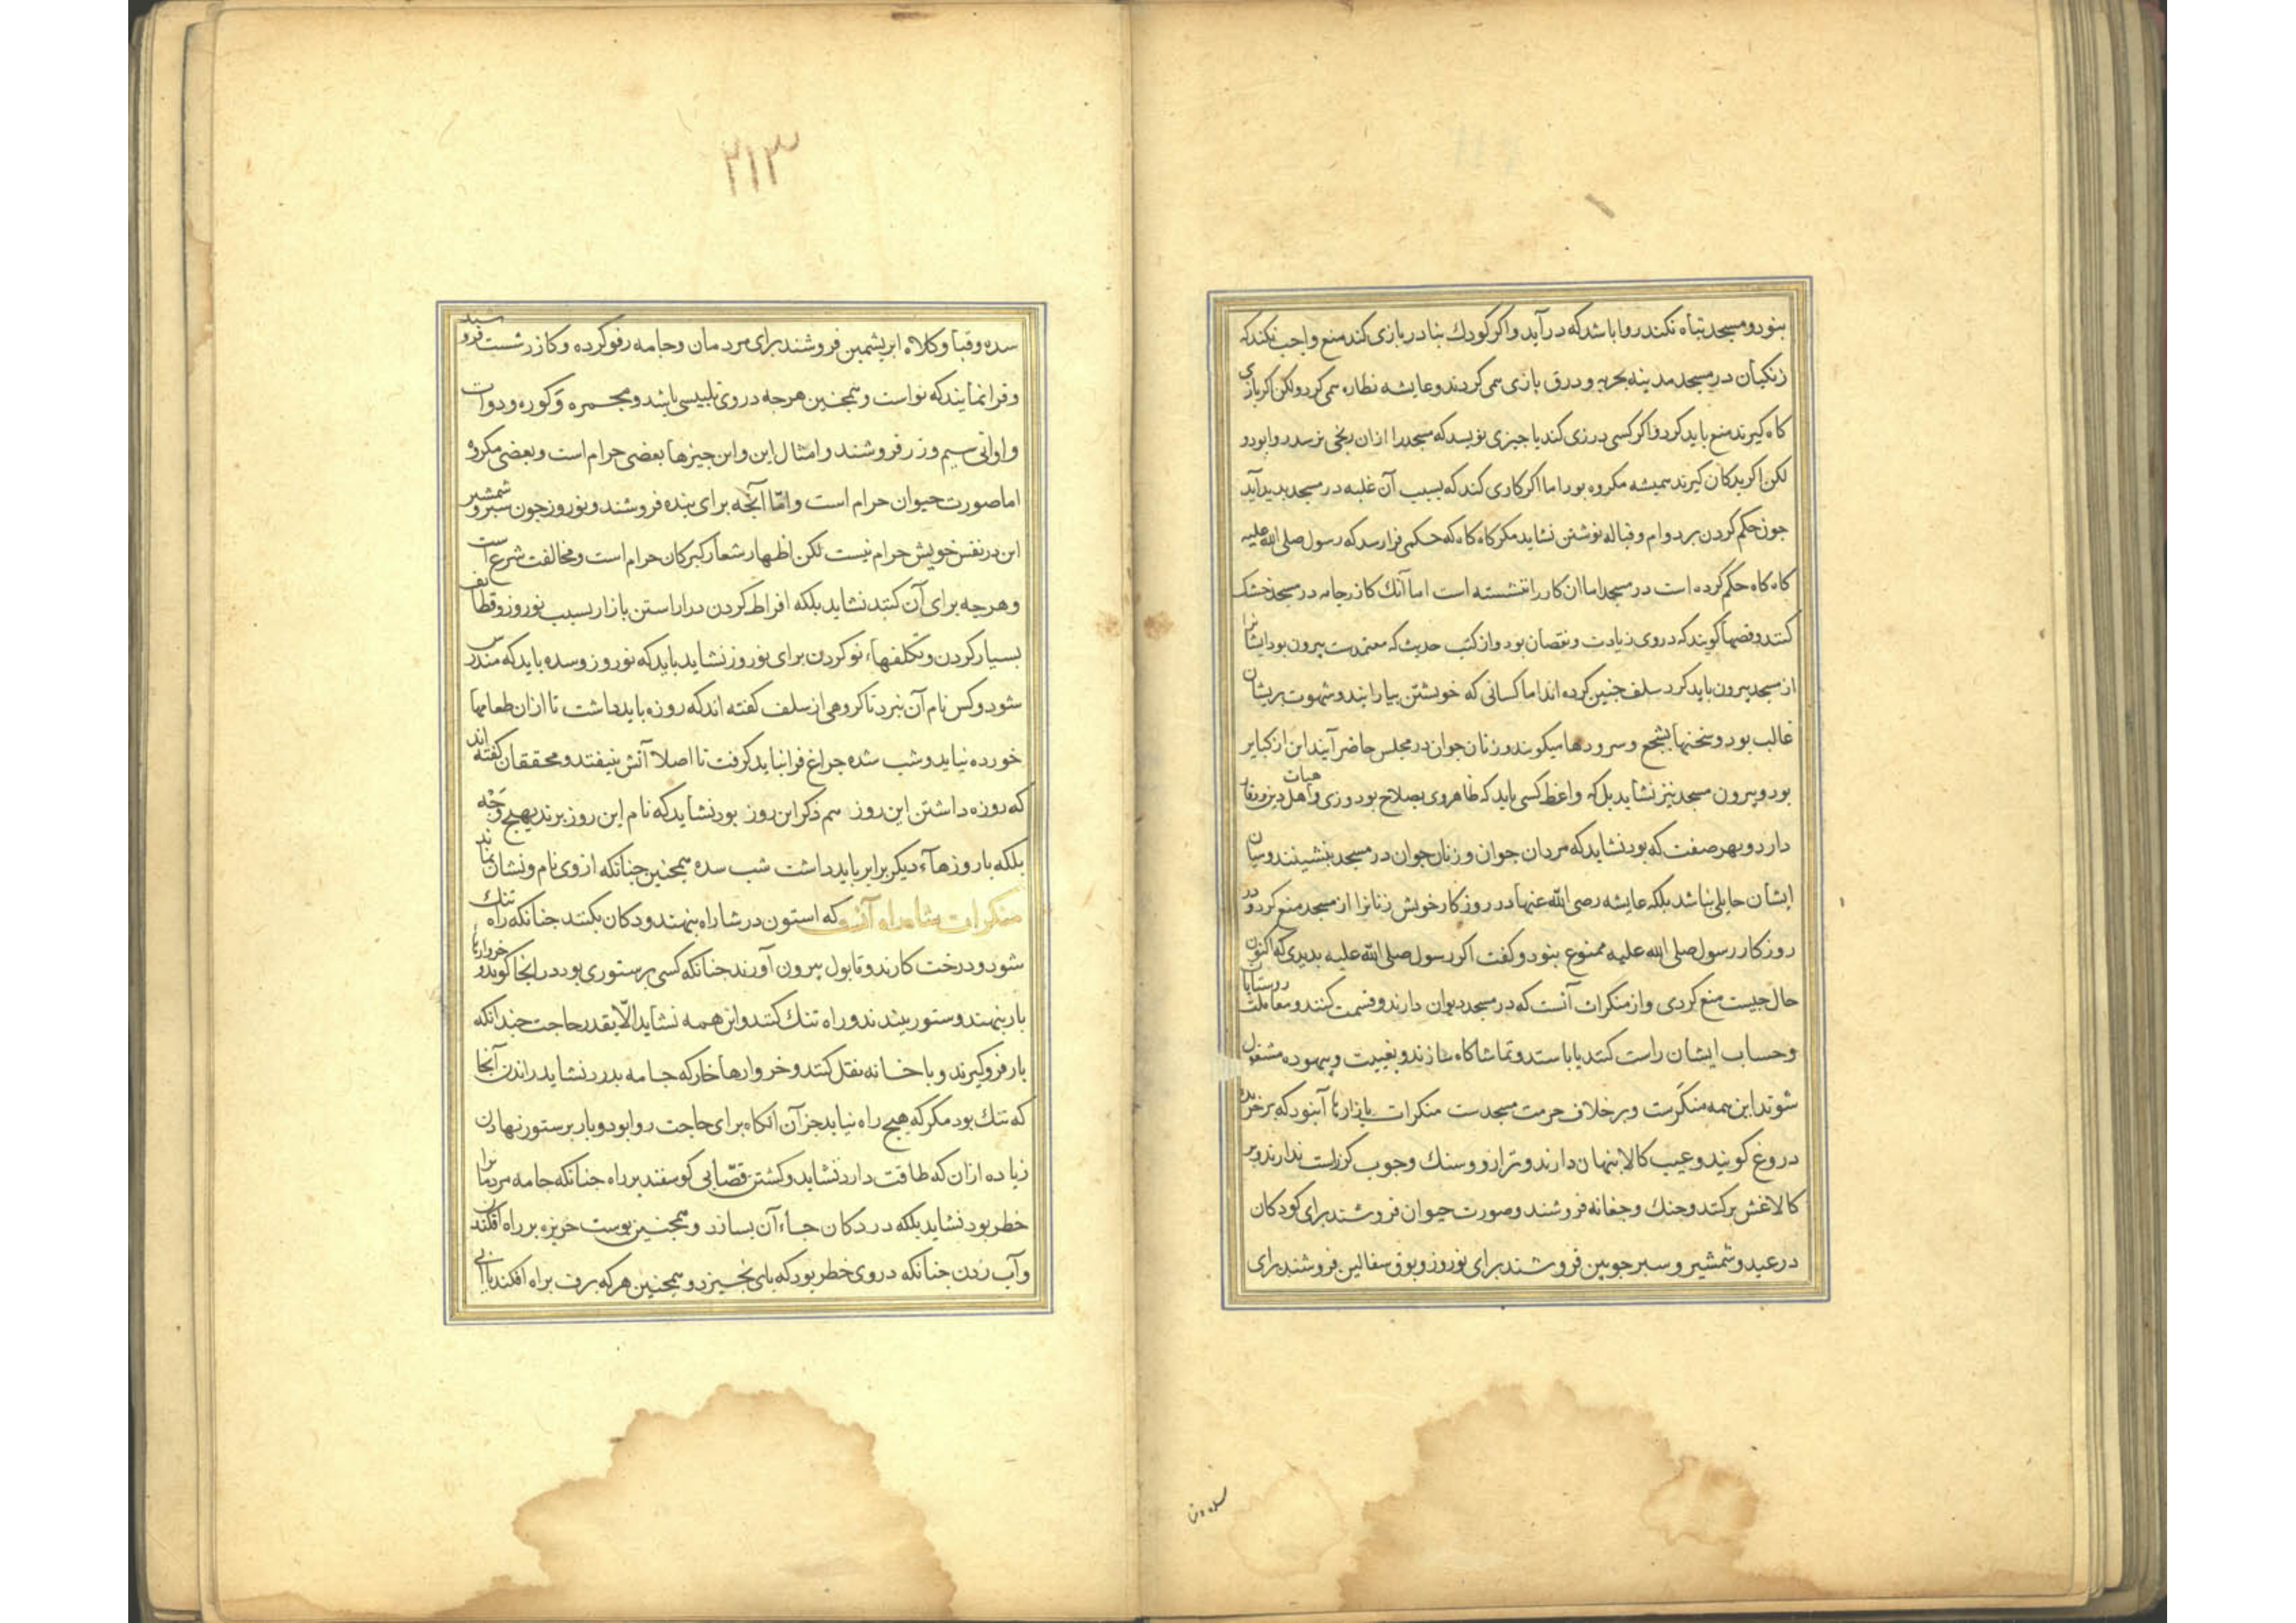 بنود و مسجد تباه نکند روا باشد که در آید و اکر کودك بنادر بازی کند منع واجب نکند که
زنکیان در مسجد مدینه بحربه و درق بازی می کردند و عایشه نظاره می کرد و لکن اکر بازی
کاه کیرند منع باید کرد و اکر کسی درزی کند یا چیزی نویسد که مسجد را ازان رنجی نرسد روا بود و
لکن اکر بدکان کیرند همیشه مکروه بود اما اکر کاری کند که بسبب آن غلبه در مسجد بدید آید
جون حکم کردن بر دوام و قباله نوشتن نشاید مکر کاه کاه که حکمی فرا رسد که رسول صلی الله علیه
کاه کاه حکم کرده است در مسجد اما ان کار را ننشسته است اما آنك کازر جامه در مسجد خشك
کنند و قصها کویند که در وی زیادت و نقصان بود و از کتب حدیث که معتمدست بیرون بود ایشانرا
از مسجد بیرون باید کرد سلف جنین کرده اند اما کسانی که خویشتن بیارایند و شهوت بریشان
غالب بود و سخنها بسجع و سرودها میکویند و زنان جوان در مجلس حاضر آیند این از کبایر
بود و بیرون مسجد نیز نشاید بلکه واعظ کسی باید که ظاهر وی بصلاح بود و زی و هیات اهل دین و وقار
دارد و بهر صفت که بود نشاید که مردان جوان و زنان جوان در مسجد بنشینند و میان
ایشان حایلی نباشد بلکه عایشه رضی الله عنها در روزکار خویش زنانرا از مسجد منع کرد و در
روزکار رسول صلی الله علیه ممنوع بنود و کفت اکر رسول صلی الله علیه بدیدی که اکنون
حال جیست منع کردی و از منکرات آنست که در مسجد دیوان دارند و قسمت کنند و معاملت روستایان
و حساب ایشان راست کنند یا باستد و تماشاکاه سازند و بغیبت و بیهوده مشغول
شوند این همه منکرست و بر خلاف حرمت مسجدست منکرات بازارها آنبود که بر خریده
دروغ کویند و عیب کالا بنهان دارند و ترازو و سنك و جوب کز راست ندارند و بر
کالا غش برکنند و جنك و جغانه فروشند و صورت حیوان فروشند برای کودکان
در عید و شمشیر و سبر جوبین فروشند برای نوروز و بوق سفالین فروشند برای
۲۱۳
سده و قبا و کلاه ابریشمین فروشند برای مردمان و جامه رفو کرده و کازر شست فروشند
و فرا نمایند که نواست و همجنین هرجه در وی تلبیسی باشد و مجمره و کوزه و دوات
و اوانی سیم و زر فروشند و امثال این و این جیزها بعضی حرام است و بعضی مکروه
اما صورت حیوان حرام است و امّا آنجه برای بنده فروشند و نوروز جون سبر و شمشیر
این در نفس خویش حرام نیست لکن اظهار شعار کبرکان حرام است و مخالفت شرع است
و هرجه برای آن کنند نشاید بلکه افراط کردن در اراستن بازار بسبب نوروز و قطایف
بسیار کردن و تکلفهاء نو کردن برای نوروز نشاید باید که نوروز و سده باید که مندرس
شود و کس نام آن نبرد تا کروهی از سلف کفته اند که روزه باید داشت تا ازان طعامها
خورده نیاید و شب سده جراغ فرا نباید کرفت تا اصلا آتش نیفتد و محققان کفته اند
که روزه داشتن این روز هم ذکر این روز بود نشاید که نام این روز برند بهیج وجه
بلکه با روزهاء دیکر برابر باید داشت شب سده همجنین جنانکه از وی نام و نشان نماند
منکرات شاه راه آنست که استون در شاراه بنهند و دکان بکنند جنانکه راه تنك
شود و درخت کارند و تابول بیرون آورند جنانکه کسی بر ستوری بود در انجا کوبد و خروارها
بار بنهند و ستور بندند و راه تنك کنند و این همه نشاید الّا بقدر حاجت جندانکه
بار فرو کیرند و با خانه نقل کنند و خروارها خار که جامه بدرد نشاید راندن آنجا
که تنك بود مکر که هیج راه نیابد جز آن انکاه برای حاجت روا بود و بار بر ستور نهادن
زیاده ازان که طاقت دارد نشاید و کشتن قصّابی کوسفند بر راه جنانکه جامه مردمانرا
خطر بود نشاید بلکه در دکان جاء آن بسازد و همجنین بوست خربزه بر راه افکندن
و آب زدن جنانکه در وی خطر بود که بای بخیزد و همجنین هر که برف براه افکند یا آبی